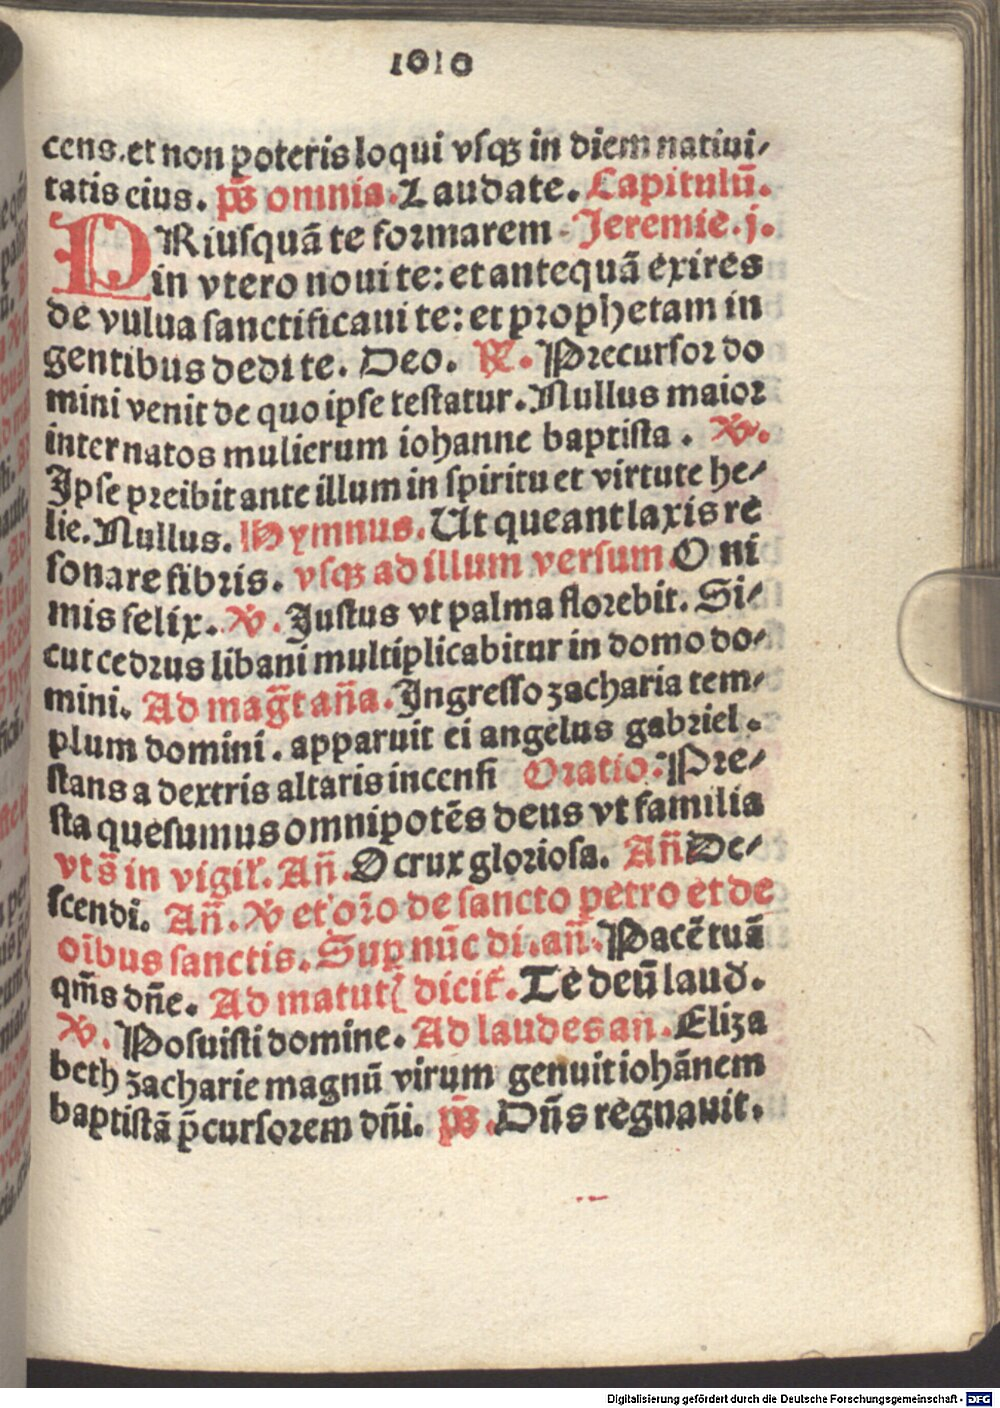 1010
cens.et non poteris loqui vsqꝫ in diem natiui/
tatis eius. ps̄ omnia. Laudate. Capitulū.
PRiusquā te formarem Jeremie.j.
in vtero noui te: et antequā exires
de vulua sanctificaui te: et prophetam in
gentibus dedi te. Deo. ℟. Precursor do
mini venit de quo ipse testatur. Nullus maior
inter natos mulierum iohanne baptista. ℣.
Ipse preibit ante illum in spiritu et virtute he/
lie. Nullus. Hymnus. Ut queant laxis re
sonare fibris. vsqꝫ ad illum versum. O ni
mis felix. ℣. Justus vt palma florebit. Si/
cut cedrus libani multiplicabitur in domo do/
mini. Ad mag̃t an̄a. Ingresso zacharia tem/
plum domini. apparuit ei angelus gabriel.
stans a dextris altaris incensi Oratio. Pre/
sta quesumus omnipotēs deus vt familia
vts̄ in vigil'. An̄. O crux gloriosa. An̄ De/
scendi. An̄. ℣ et or̄o de sancto petro et de
oībus sanctis. Sup nūc di. an̄. Pacē tuā
qm̄s dn̄e. Ad matut̄ dicit'. Te deū laud.
℣. Posuisti domine. Ad laudes an. Eliza
beth zacharie magnū virum genuit iohānem
baptistā p̄cursorem dn̄i. ps̄. Dn̄s regnauit.
Digitalisierung gefördert durch die Deutsche Forschungsgemeinschaft - DFG